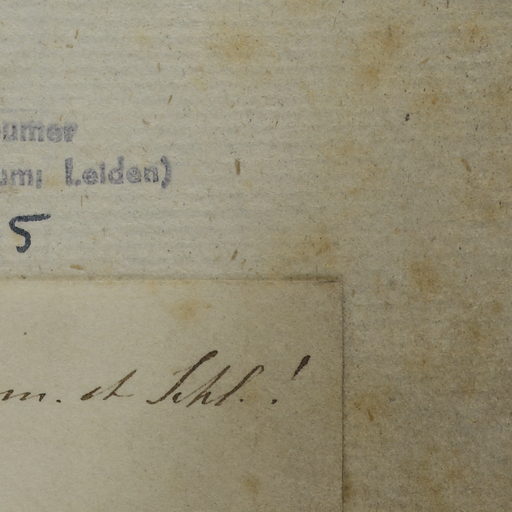 eumer
um; Leiden)
5
m. et Schl. !